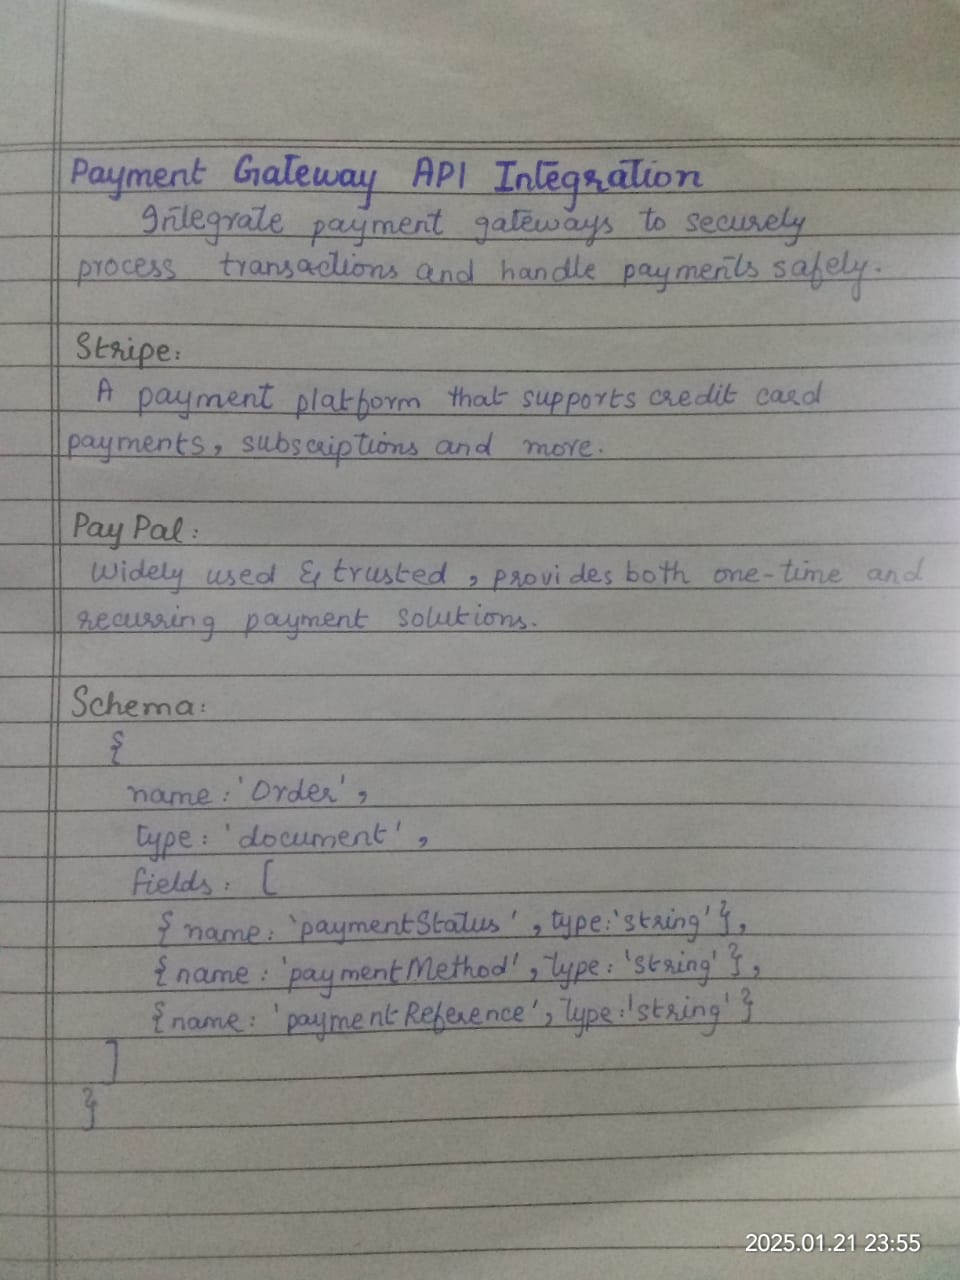 Payment Gateway API Integration
Integrate payment gateways to securely
process transactions and handle payments safely.
Stripe:
A payment platform that supports credit card
payments, subscriptions and more.
PayPal:
Widely used & trusted, provides both one-time and
recurring payment solutions.
Schema:
{
name: 'Order',
type: 'document',
fields: [
{ name: 'paymentStatus', type: 'string' },
{ name: 'paymentMethod', type: 'string' },
{ name: 'paymentReference', type: 'string' }
]
}
2025.01.21 23:55